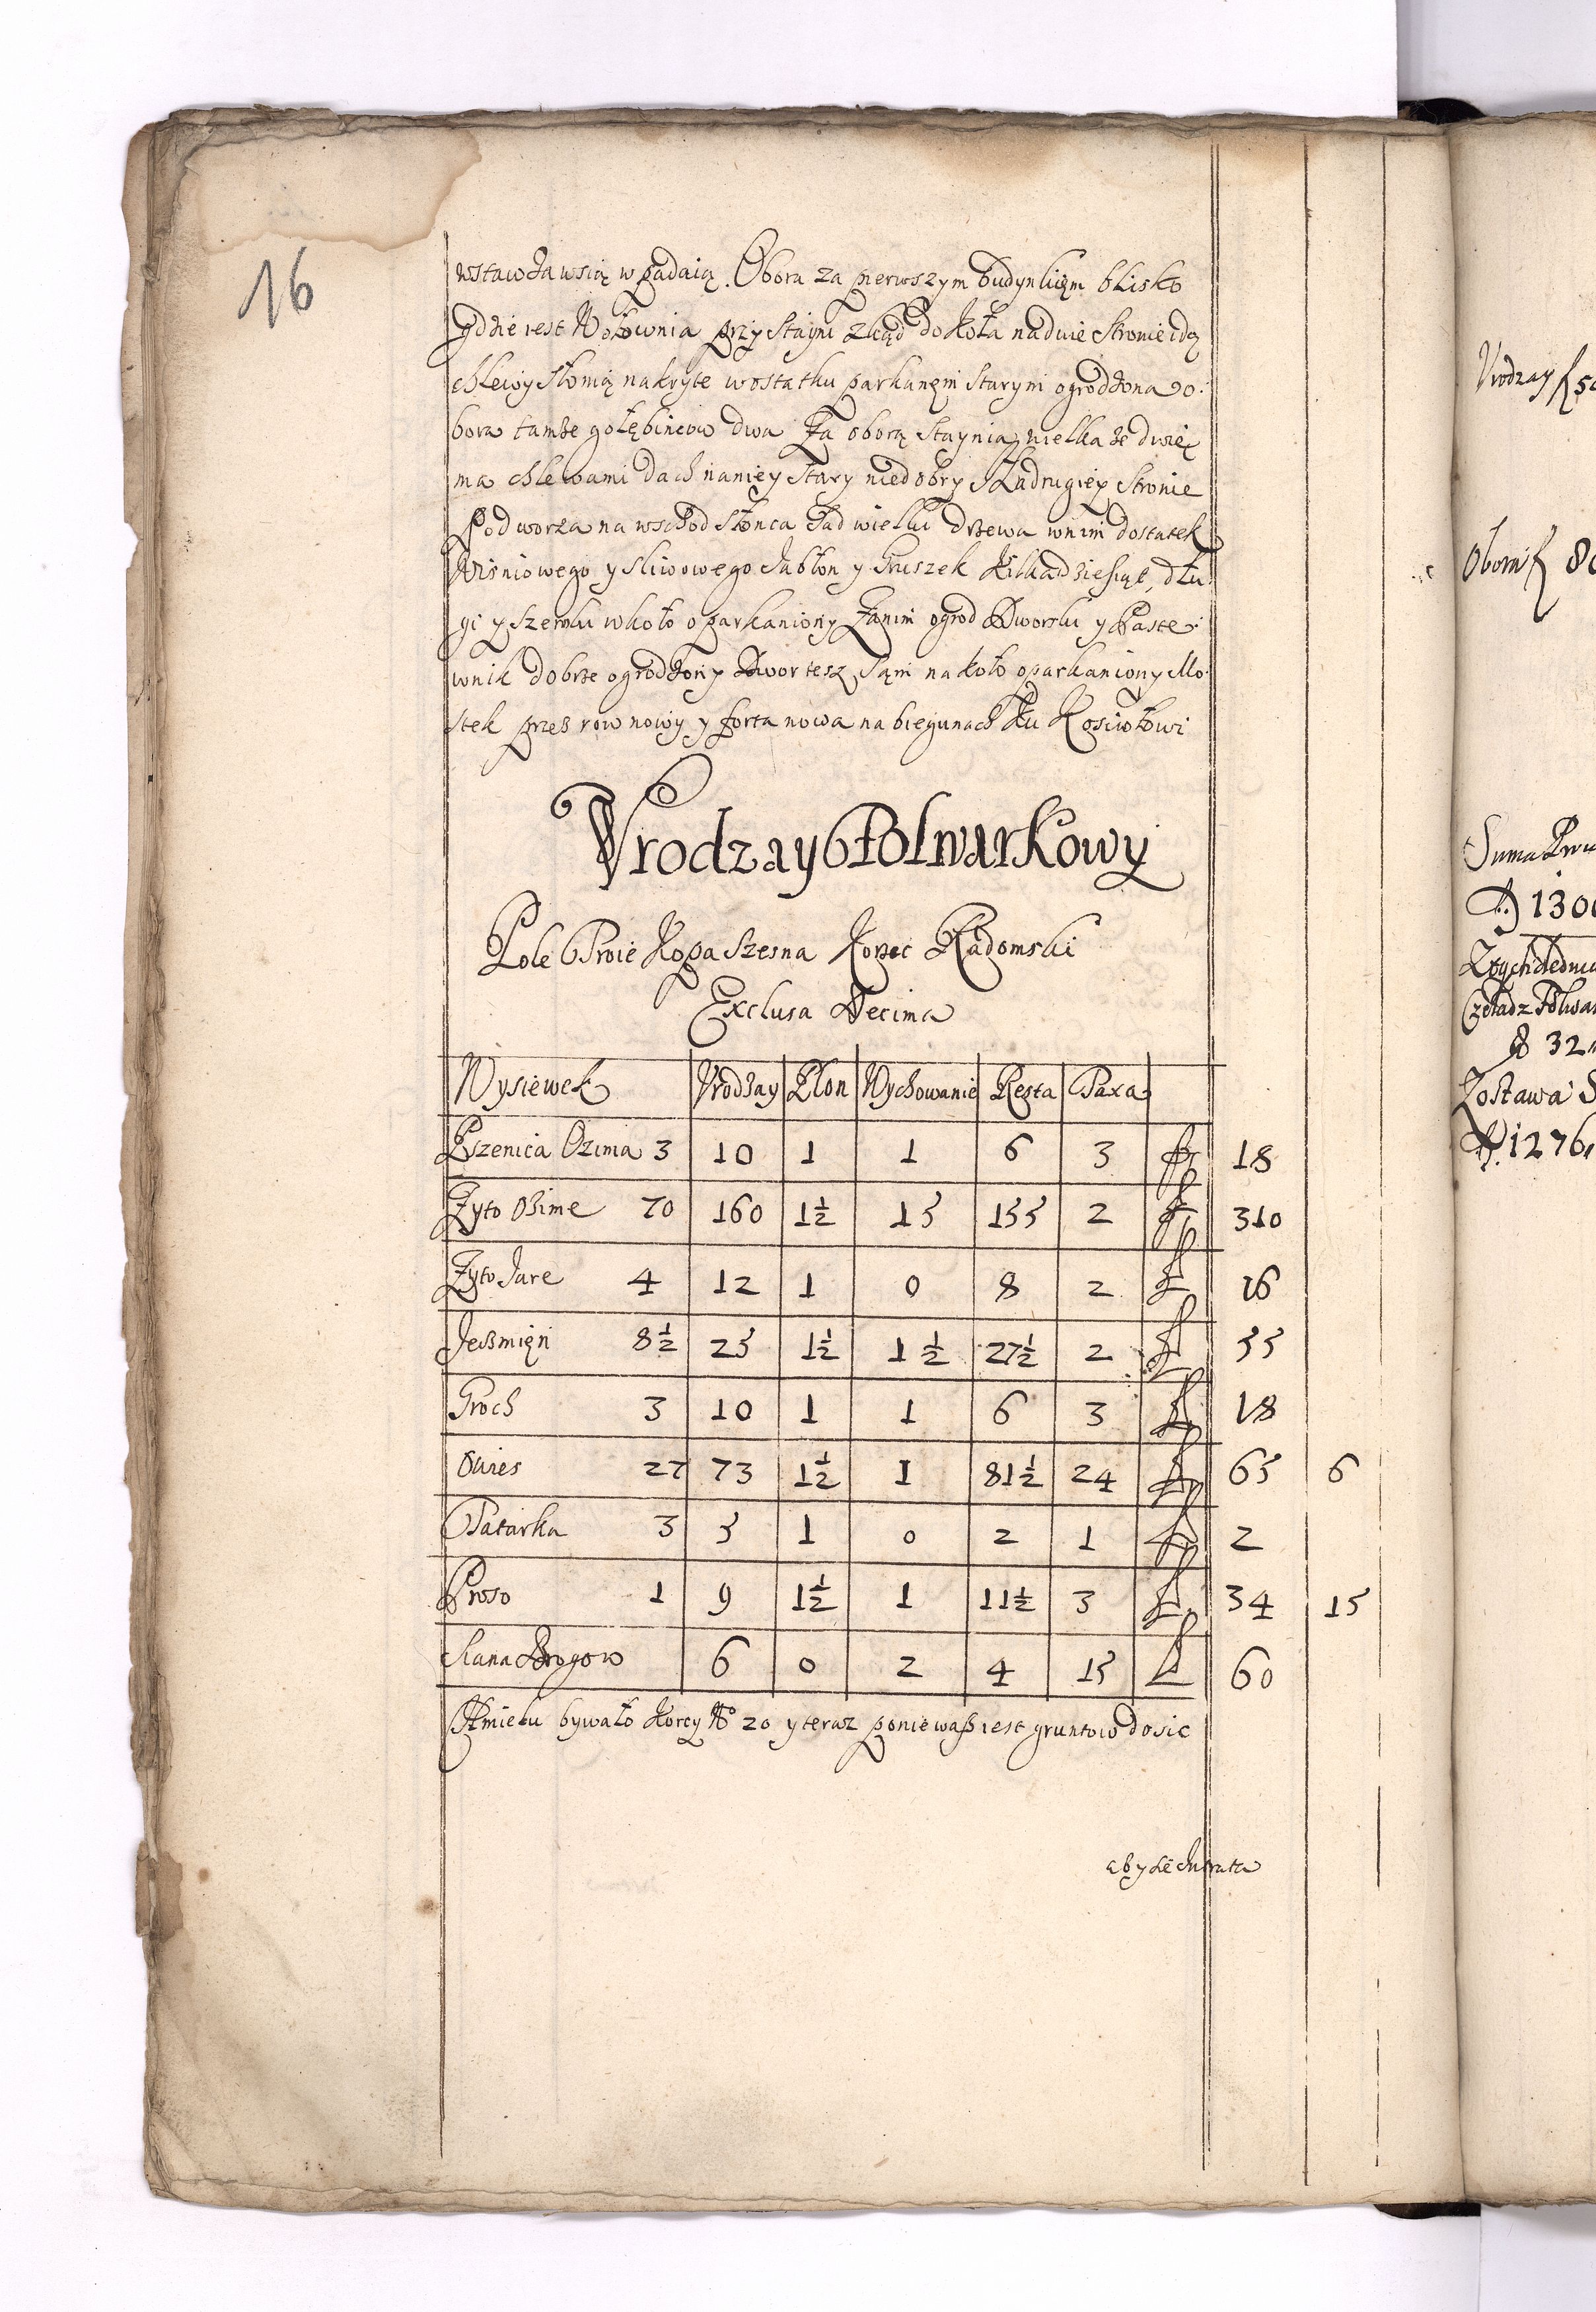 16
wstaw za wsią wpadaią. Obora za pierwszym budynkięm blisko
gdzie iest Wołownia przy Stayni zkąd do koła na dwie stronie idą
chlewy słomą nakryte wostatku parkanęm starym ogrodzona o:
bora tamże gołębincow dwa Za oborą Staynia wielka ze dwie
ma chlewami dach na niey stary niedobry Na drugiey stronie
Podworza na wschod słonca Sad wielki drzewa wnim dostatek
Wisniowego y sliwowego Jabłon y Gruszek kilkadziesiąt, dłu
gi y szeroki wkoło oparkaniony Zanim ogrod Dworski y Paste:
wnik dobrze ogrodzony Dwor tesz sąm na koło oparkaniony Mo:
stek przez row nowy y forta nowa na biegunach ku Kosciołowi
Vrodzay Folwarkowy
Pole Troie Kopa Szesna Korzec Radomski
Exclusa Decima
Wysiewek Vrodzay Plon Wychowanie Resta Taxa
Pszenica Ozima 3 10 1 1 6 3 f 18
Zyto Ozime 70 160 1½ 15 155 2 f 310
Zyto Jare 4 12 1 0 8 2 f 16
Jeszmięń 8½ 25 1½ 1½ 27½ 2 f 55
Groch 3 10 1 1 6 3 f 18
Owies 27 73 1½ 1 81½ 24 f 65 6
Tatarka 3 5 1 0 2 1 f 2
Proso 1 9 1½ 1 11½ 3 f 34 15
Siana Brogow 6 0 2 4 15 f 60
Chmielu bywało korcy No 20 y teraz poniewasz iest gruntow dosic
aby sie
Vrodzay f
Oborni f 80
Suma
f 130
Czeladz
32
Zostawa
f 1276